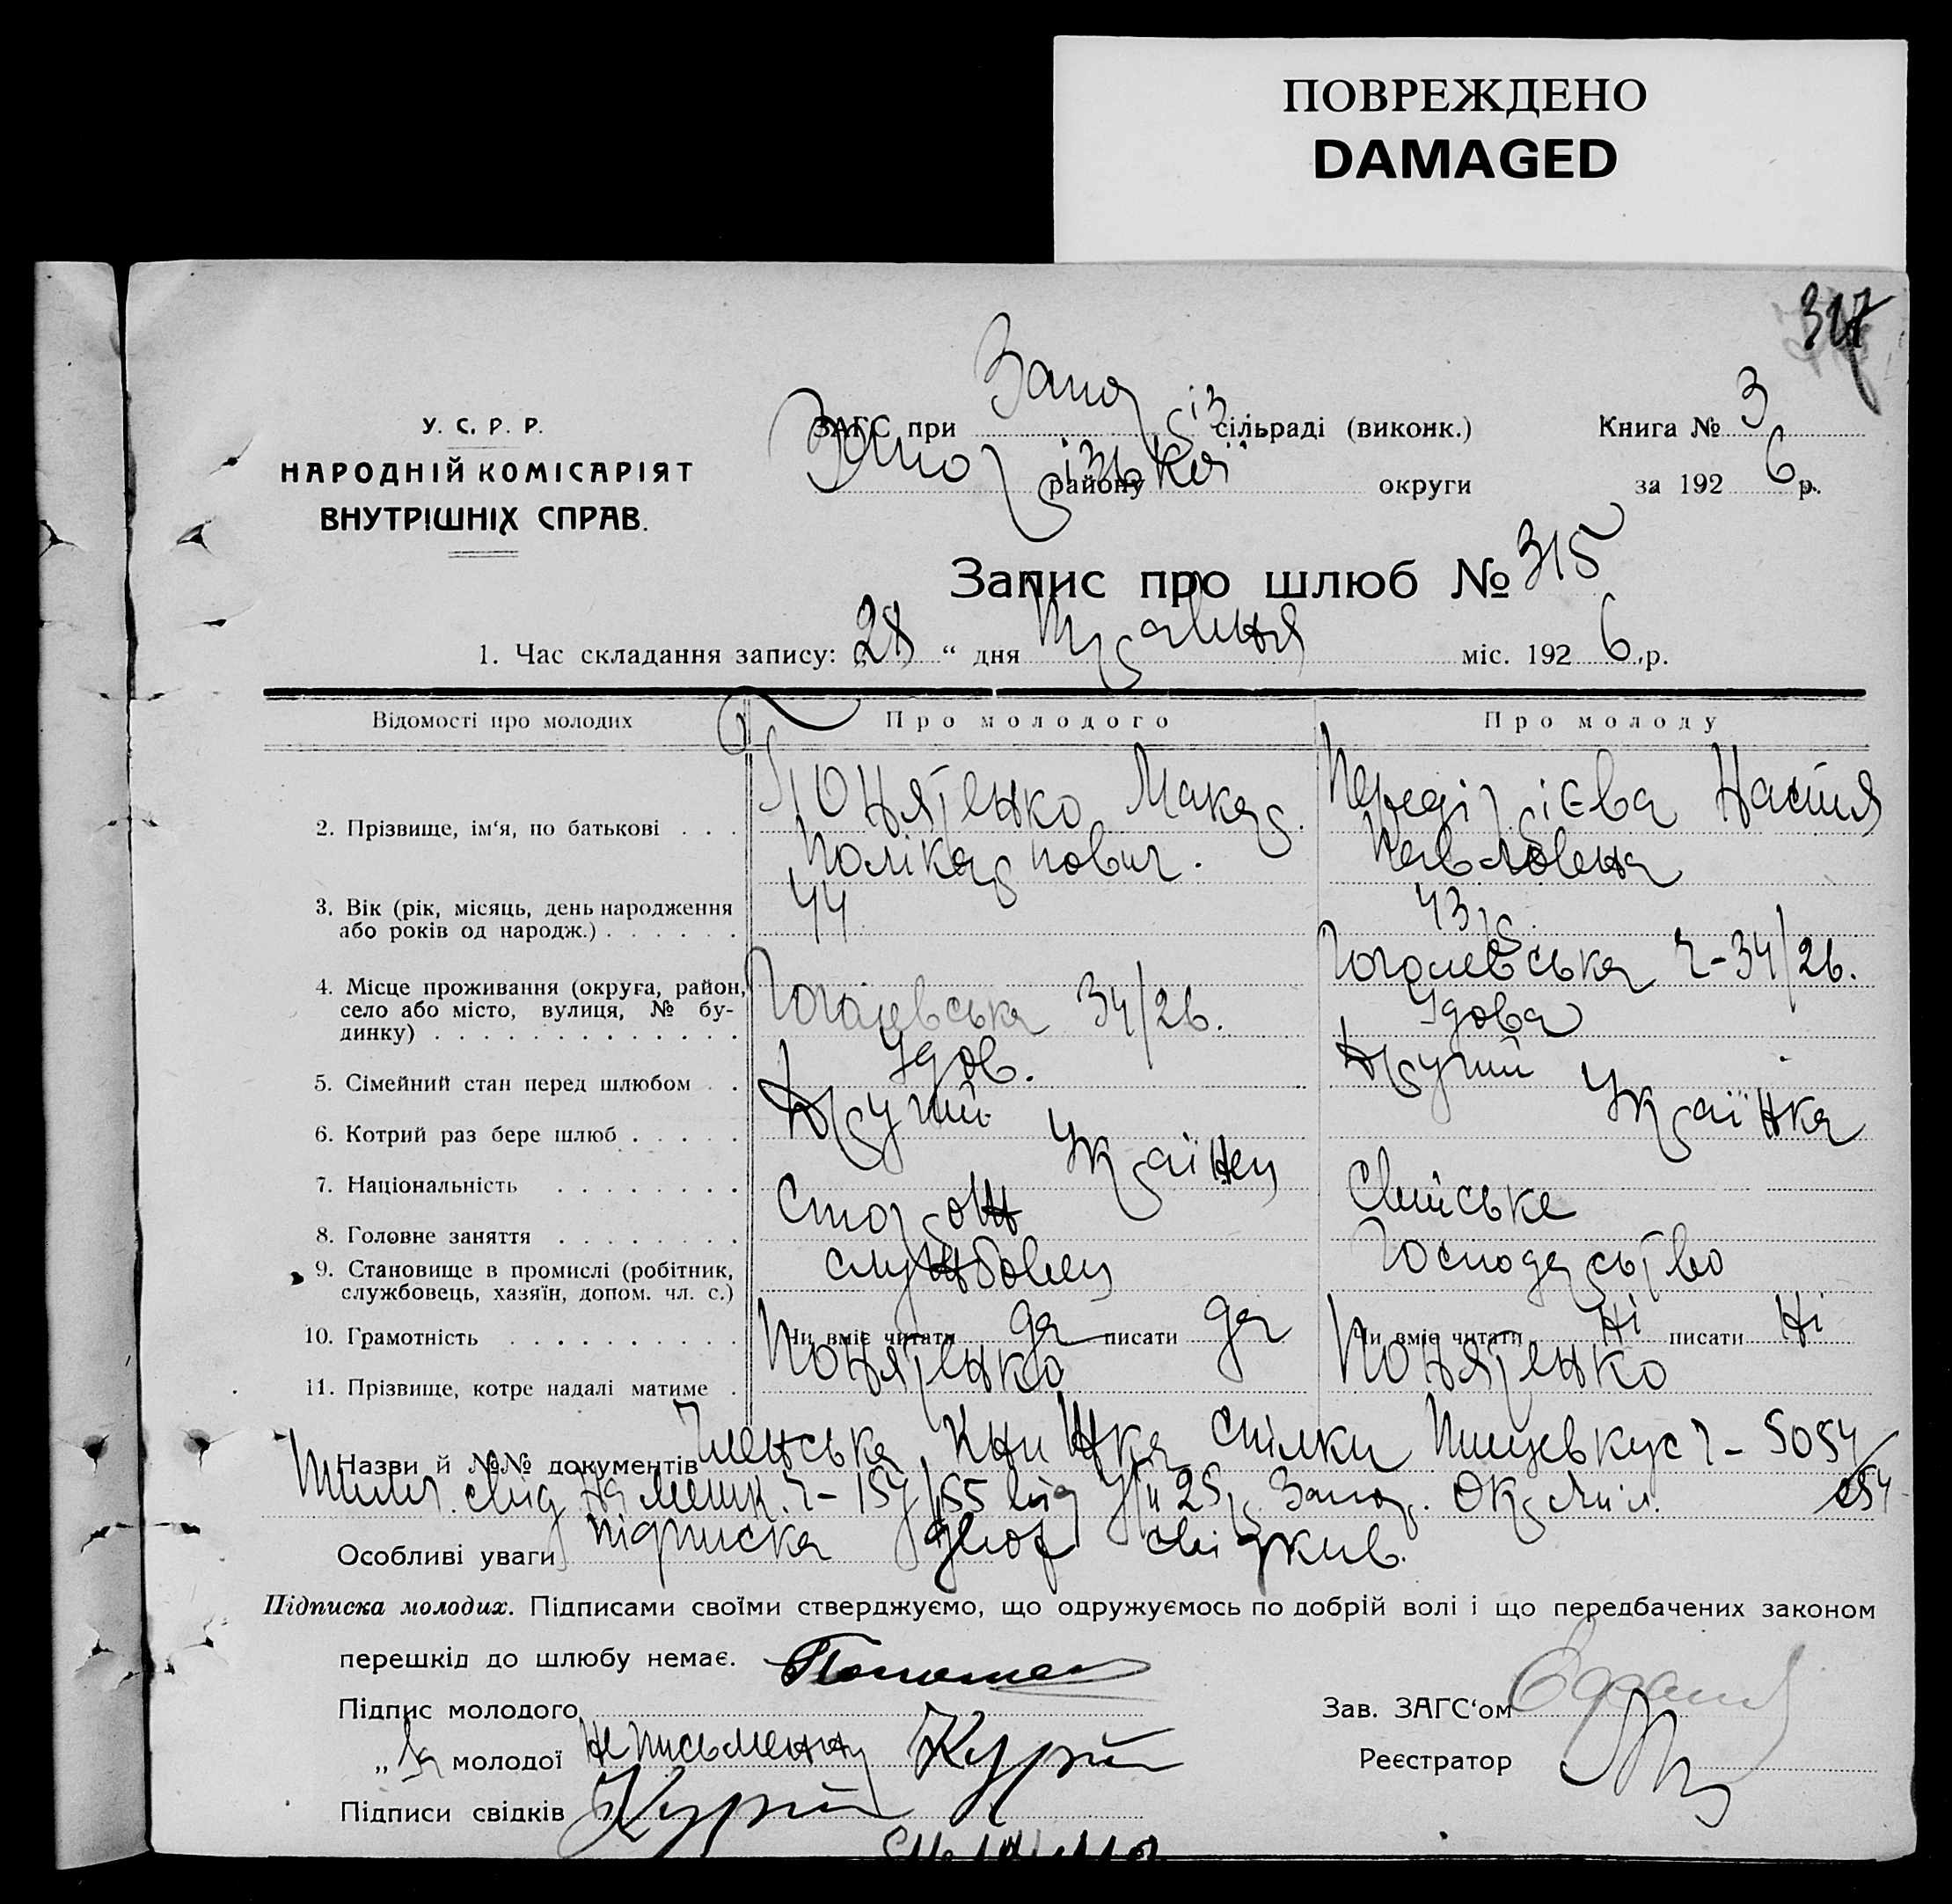 ПОВРЕЖДЕНО
DAMAGED
317
У. С. Р. Р.
НАРОДНІЙ КОМІСАРІЯТ
ВНУТРІШНІХ СПРАВ.
ЗАГС при Запоріз сільраді (виконк.) Книга № 3
Запорізької району округи за 1926 р.
Запис про шлюб № 315
1. Час складання запису: „28“ дня травня міс. 1926 р.
Відомості про молодих Про молодого Про молоду
2. Прізвище, ім'я, по батькові . . . Понятенко Макар Полікарпович. Передірієва Настя Павловена
3. Вік (рік, місяць, день народження або років од народж.) . . . . . . 44 43 р.
4. Місце проживання (округа, район, село або місто, вулиця, № будинку) . . . . . . . . . . . . . Гоголевська 34/26. Гоголевська ч-34/26.
5. Сімейний стан перед шлюбом . . Удов. Удова
6. Котрий раз бере шлюб . . . . . Другий Другий
7. Національність . . . . . . . . Українец Українка
8. Головне заняття . . . . . . . . Сторож Свійське
9. Становище в промислі (робітник, службовець, хазяїн, допом. чл. с.) службовец Господарство
10. Грамотність . . . . . . . . . . Чи вміє читати да писати да Чи вміє читати Ні писати Ні
11. Прізвище, котре надалі матиме . Понятенко Понятенко
Назви й №№ документів Членська Книжка Спілки ч- 5054
від 25 Запор.
Особливі уваги підписка двох свідків.
Підписка молодих. Підписами своїми стверджуємо, що одружуємось по добрій волі і що передбачених законом
перешкід до шлюбу немає.
Підпис молодого Зав. ЗАГС'ом
„ за молодої неписьменну Курій Реєстратор
Підписи свідків Курій